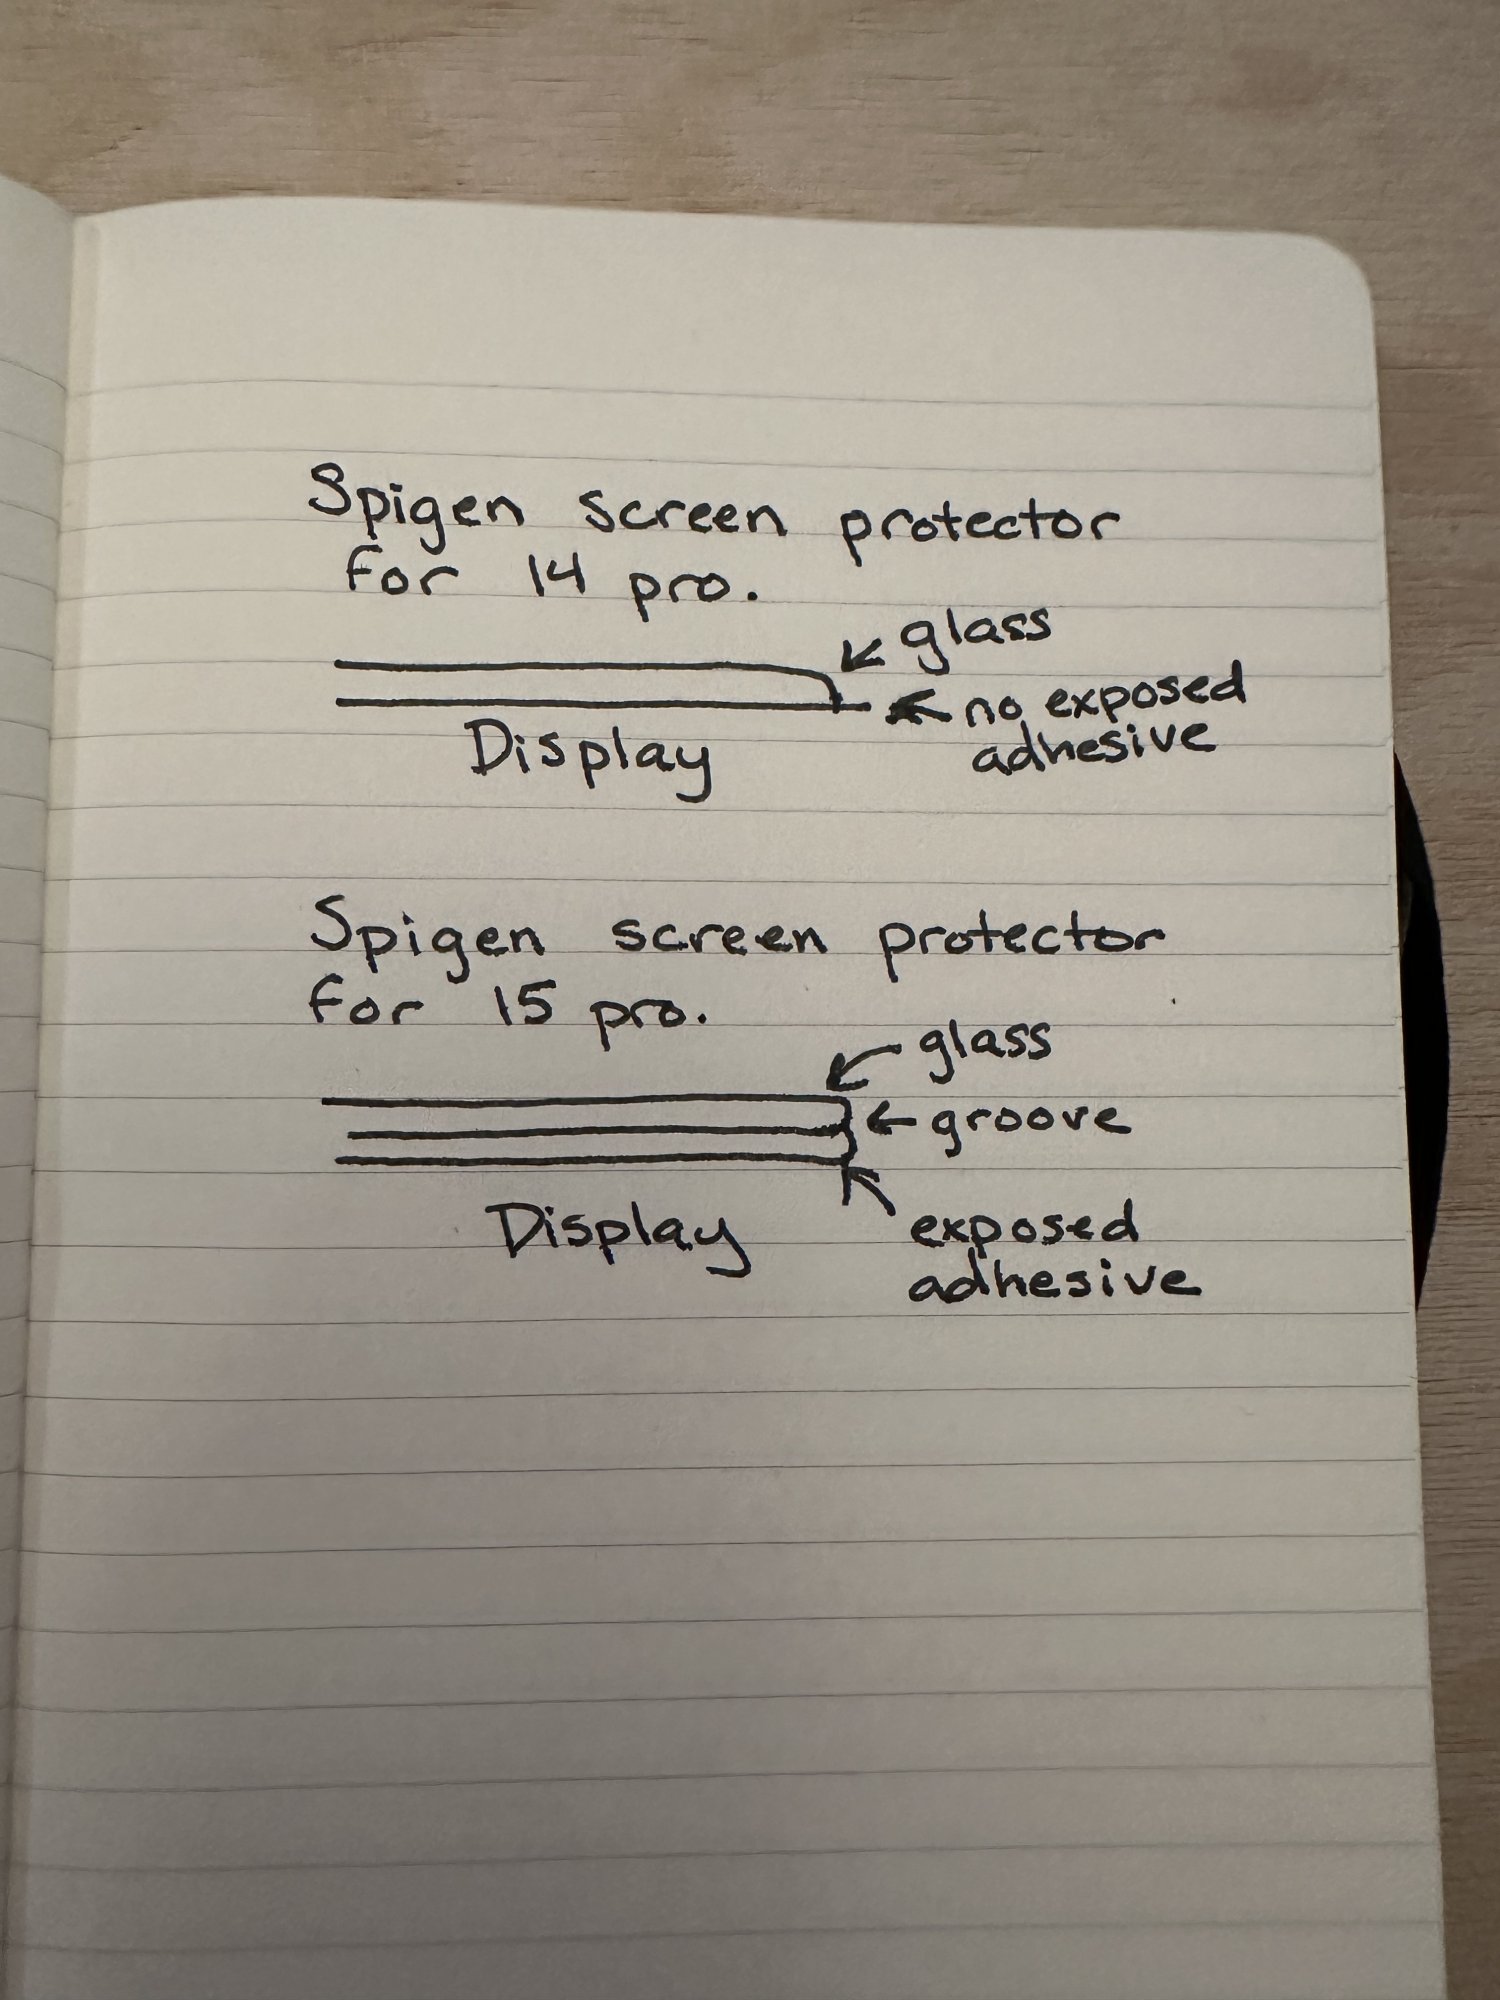 Spigen screen protector
for 14 pro.
glass
no exposed
adhesive
Display
Spigen screen protector
for 15 pro.
glass
groove
exposed
adhesive
Display